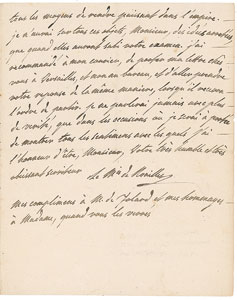 tous les moyens de rendre puissant dans l'empire. —
je n'aurai sur tous ces objets, Monsieur, des idées arrêtées
que quand elles auront subi votre examen. j'ai
recommandé à mon courier, de porter ma lettre chez
vous à Versailles, et non au bureau, et d'aller prendre
votre réponse de la même manière, lorsqu'il recevra
l'ordre de partir. je ne parlerai jamais avec plus
de vérité, que dans les occasions où je serai à portée
de montrer tous les sentimens avec lesquels j'ai —
l'honneur d'être, Monsieur, Votre très humble et très
obéissant serviteur le Mis de Noailles
mes complimens à M. de et mes hommages —
à Madame, quand vous les verrez